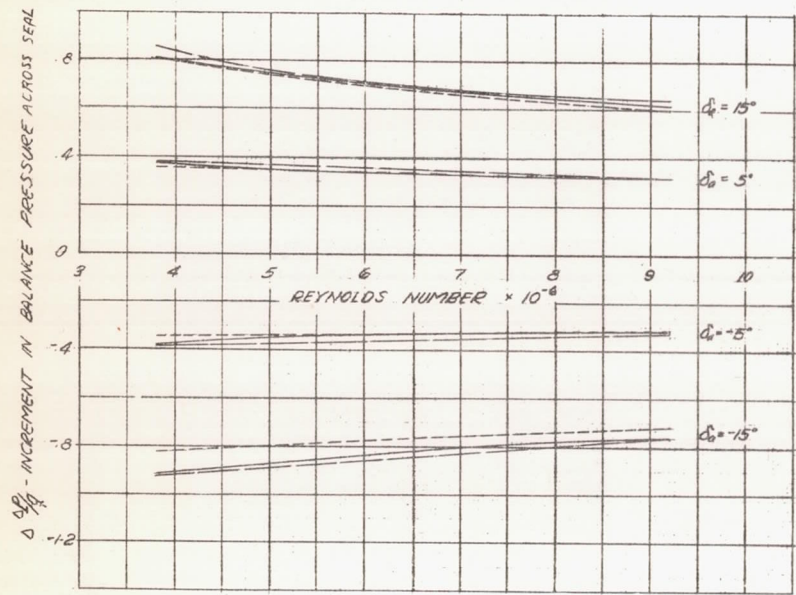 Δ ΔP/q - INCREMENT IN BALANCE PRESSURE ACROSS SEAL
.8
.4
0
-.4
-.8
-1.2
3 4 5 6 7 8 9 10
REYNOLDS NUMBER × 10⁻⁶
δa = 15°
δa = 5°
δa = -5°
δa = -15°